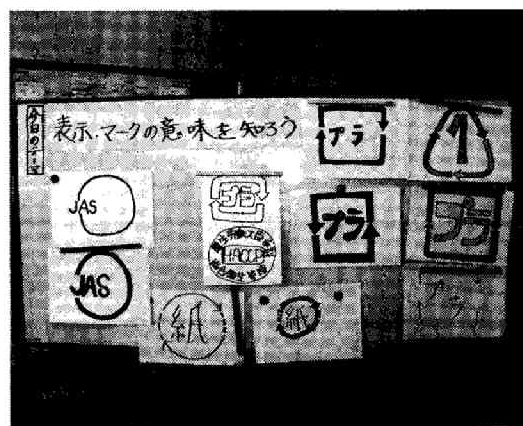 今日のテーマ
表示・マークの意味を知ろう
プラ
1
JAS
プラ
HACCP
プラ
プラ
JAS
紙
紙
プラ